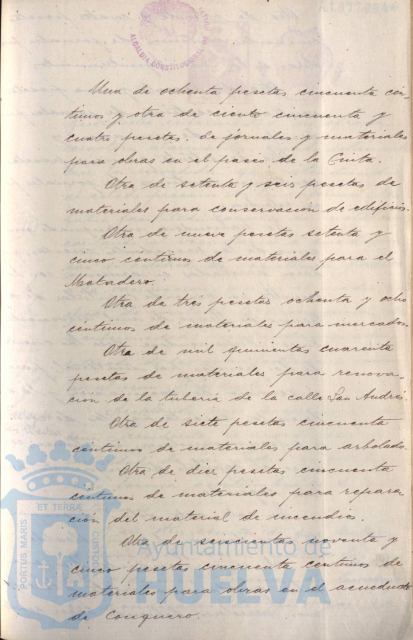 Una de ochenta pesetas cincuenta cén-
timos y otra de ciento cincuenta y
cuatro pesetas de jornales y materiales
para obras en el paseo de la Cinta.
Otra de setenta y seis pesetas de
materiales para conservación de edificios.
Otra de nueve pesetas setenta y
cinco céntimos de materiales para el
Matadero.
Otra de tres pesetas ochenta y ocho
céntimos de materiales para mercados.
Otra de mil quinientas cuarenta
pesetas de materiales para renova-
ción de la tubería de la calle San Andrés.
Otra de siete pesetas cincuenta
céntimos de materiales para arbolado.
Otra de diez pesetas cincuenta
céntimos de materiales para repara-
ción del material de incendios.
Otra de seiscientas noventa y
cinco pesetas cincuenta céntimos de
materiales para obras en el acueducto
de Conquero.
PORTUS MARIS
ET TERRÆ
CUSTODIA
Ayuntamiento de
HUELVA